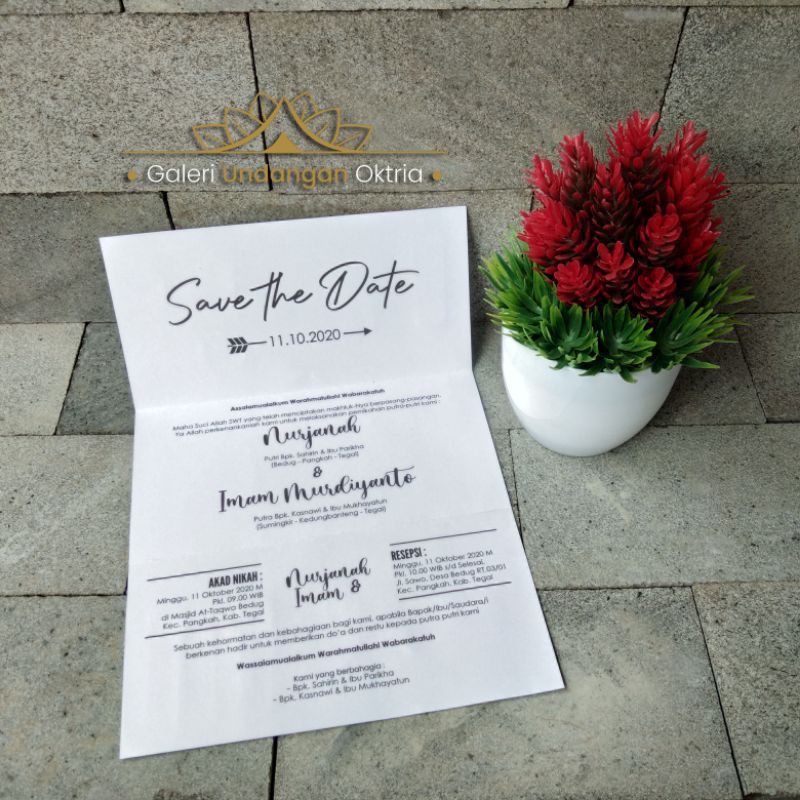 Galeri Undangan Oktria
Save the Date
11.10.2020
Assalamualaikum Warahmatullahi Wabarakatuh
Maha Suci Allah SWT yang telah menciptakan makhluk-Nya berpasang-pasangan.
Ya Allah perkenankanlah kami untuk melaksanakan pernikahan putra-putri kami :
Nurjanah
Putri Bpk. Sahirin & Ibu Parikha
(Bedug - Pangkah - Tegal)
&
Imam Murdiyanto
Putra Bpk. Kasnawi & Ibu Mukhayatun
(Sumingkir - Kedungbanteng - Tegal)
AKAD NIKAH :
Minggu, 11 Oktober 2020 M
Pkl. 09.00 WIB
di Masjid At-Taqwo Bedug
Kec. Pangkah, Kab. Tegal
Nurjanah
Imam &
RESEPSI :
Minggu, 11 Oktober 2020 M
Pkl. 10.00 WIB s/d Selesai,
Jl. Sawo, Desa Bedug RT.03/01
Kec. Pangkah, Kab. Tegal
Sebuah kehormatan dan kebahagiaan bagi kami, apabila Bapak/Ibu/Saudara/i
berkenan hadir untuk memberikan do'a dan restu kepada putra putri kami
Wassalamualaikum Warahmatullahi Wabarakatuh
Kami yang berbahagia :
- Bpk. Sahirin & Ibu Parikha
- Bpk. Kasnawi & Ibu Mukhayatun